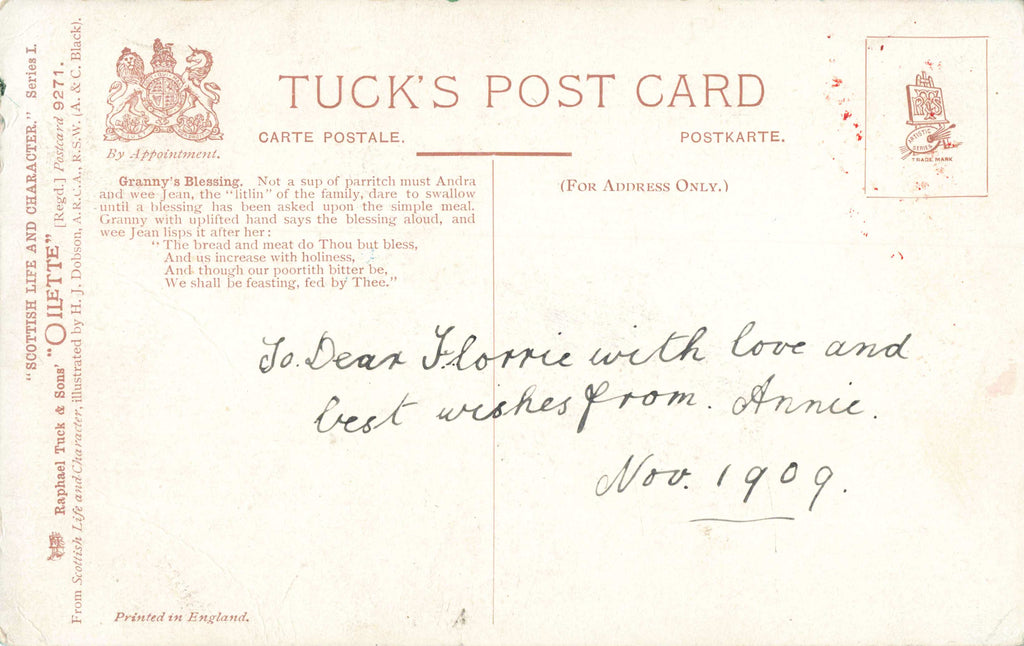 "SCOTTISH LIFE AND CHARACTER." Series I.
Raphael Tuck & Sons' "OILETTE" [Regd.] Postcard 9271.
From Scottish Life and Character, illustrated by H. J. Dobson, A.R.C.A., R.S.W. (A. & C. Black).
By Appointment.
TUCK'S POST CARD
CARTE POSTALE.
POSTKARTE.
ARTISTIC
SERIES
TRADE MARK
Granny's Blessing. Not a sup of parritch must Andra
and wee Jean, the "litlin" of the family, dare to swallow
until a blessing has been asked upon the simple meal.
Granny with uplifted hand says the blessing aloud, and
wee Jean lisps it after her:
"The bread and meat do Thou but bless,
And us increase with holiness,
And though our poortith bitter be,
We shall be feasting, fed by Thee."
(FOR ADDRESS ONLY.)
To. Dear Florrie with love and
best wishes from. Annie.
Nov. 1909.
Printed in England.